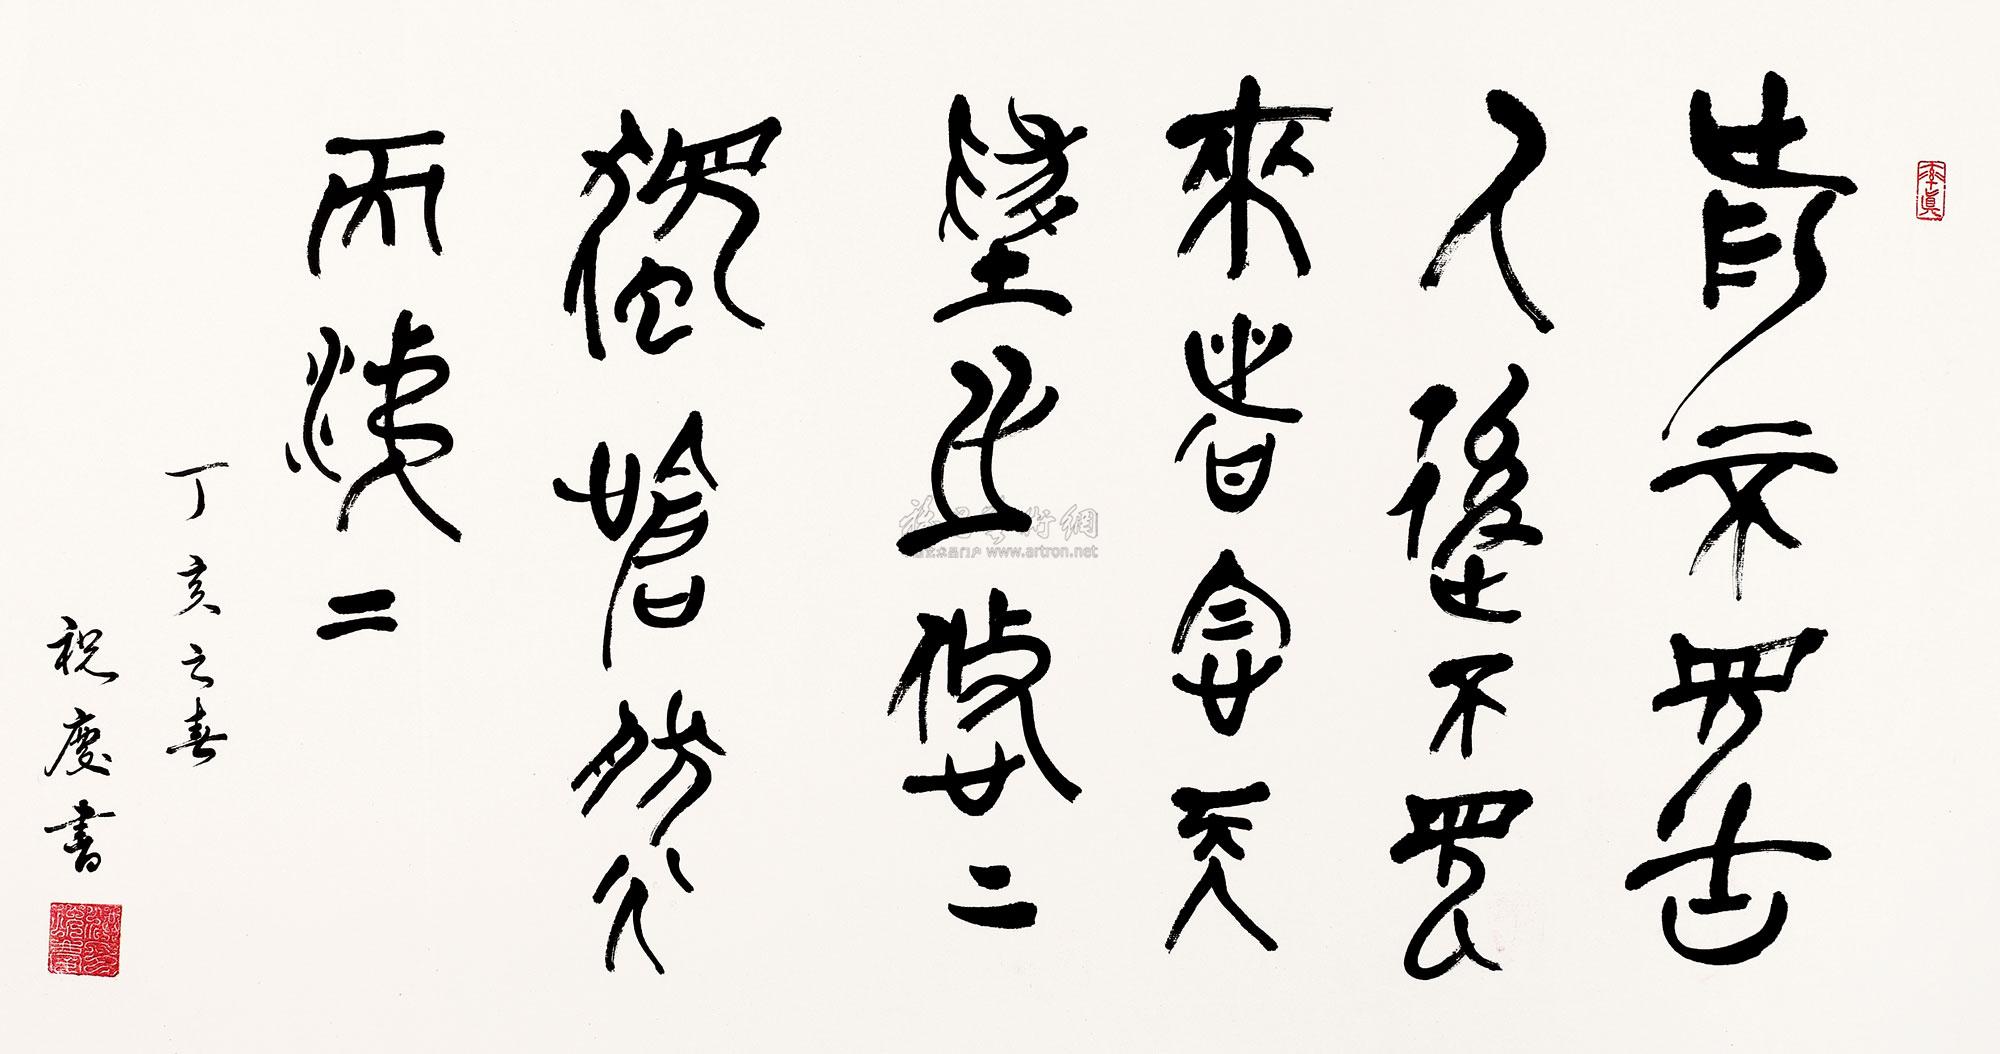 前不見古
人後不見
來者念天
地之悠〻
獨愴然
而涕下
丁亥之春
祝慶書
率真
www.artron.net